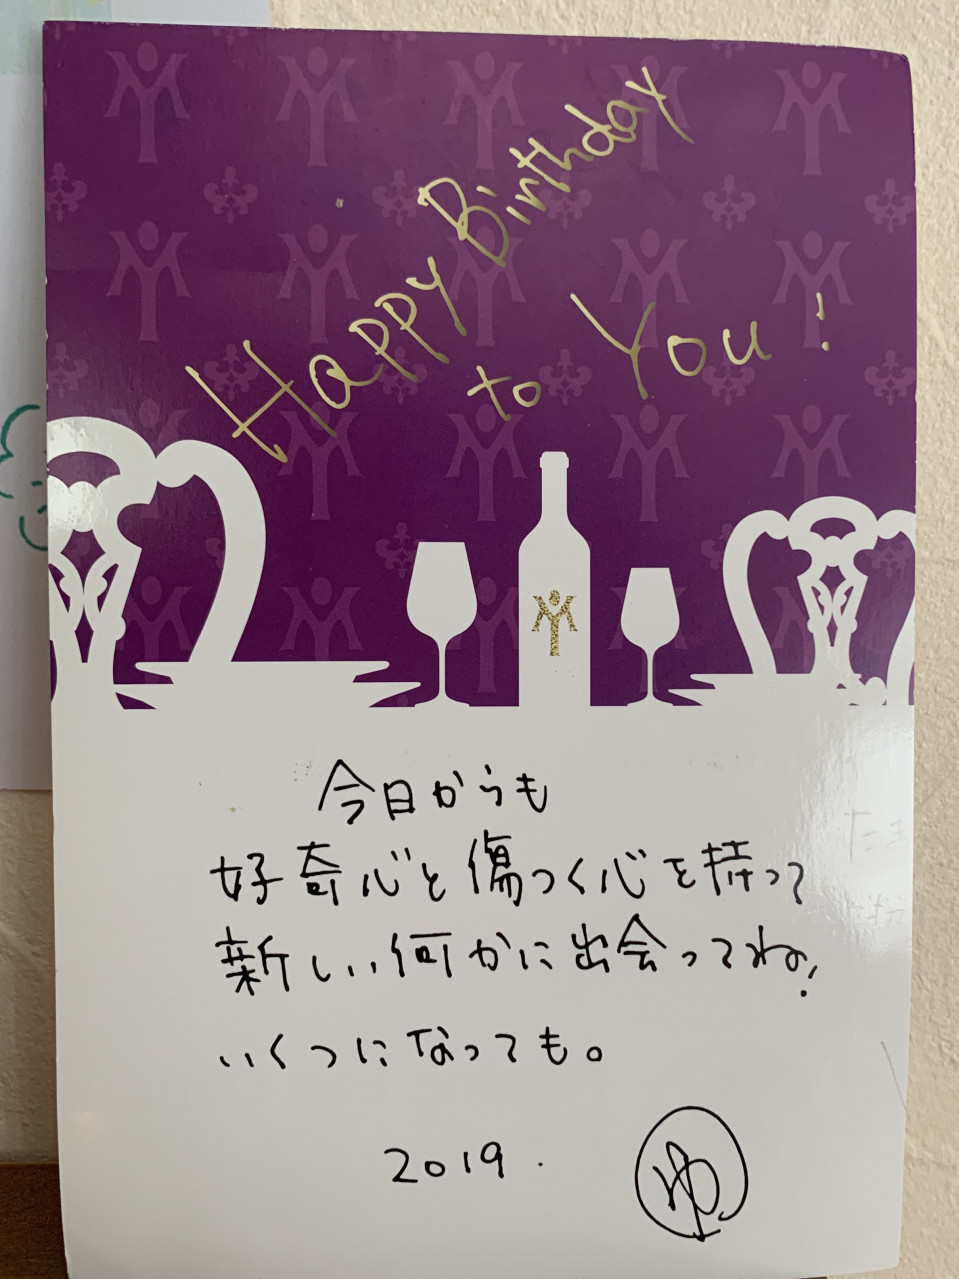 Happy Birthday
to You!
今日からも
好奇心と傷つく心を持って
新しい何かに出会ってね!
いくつになっても。
2019.